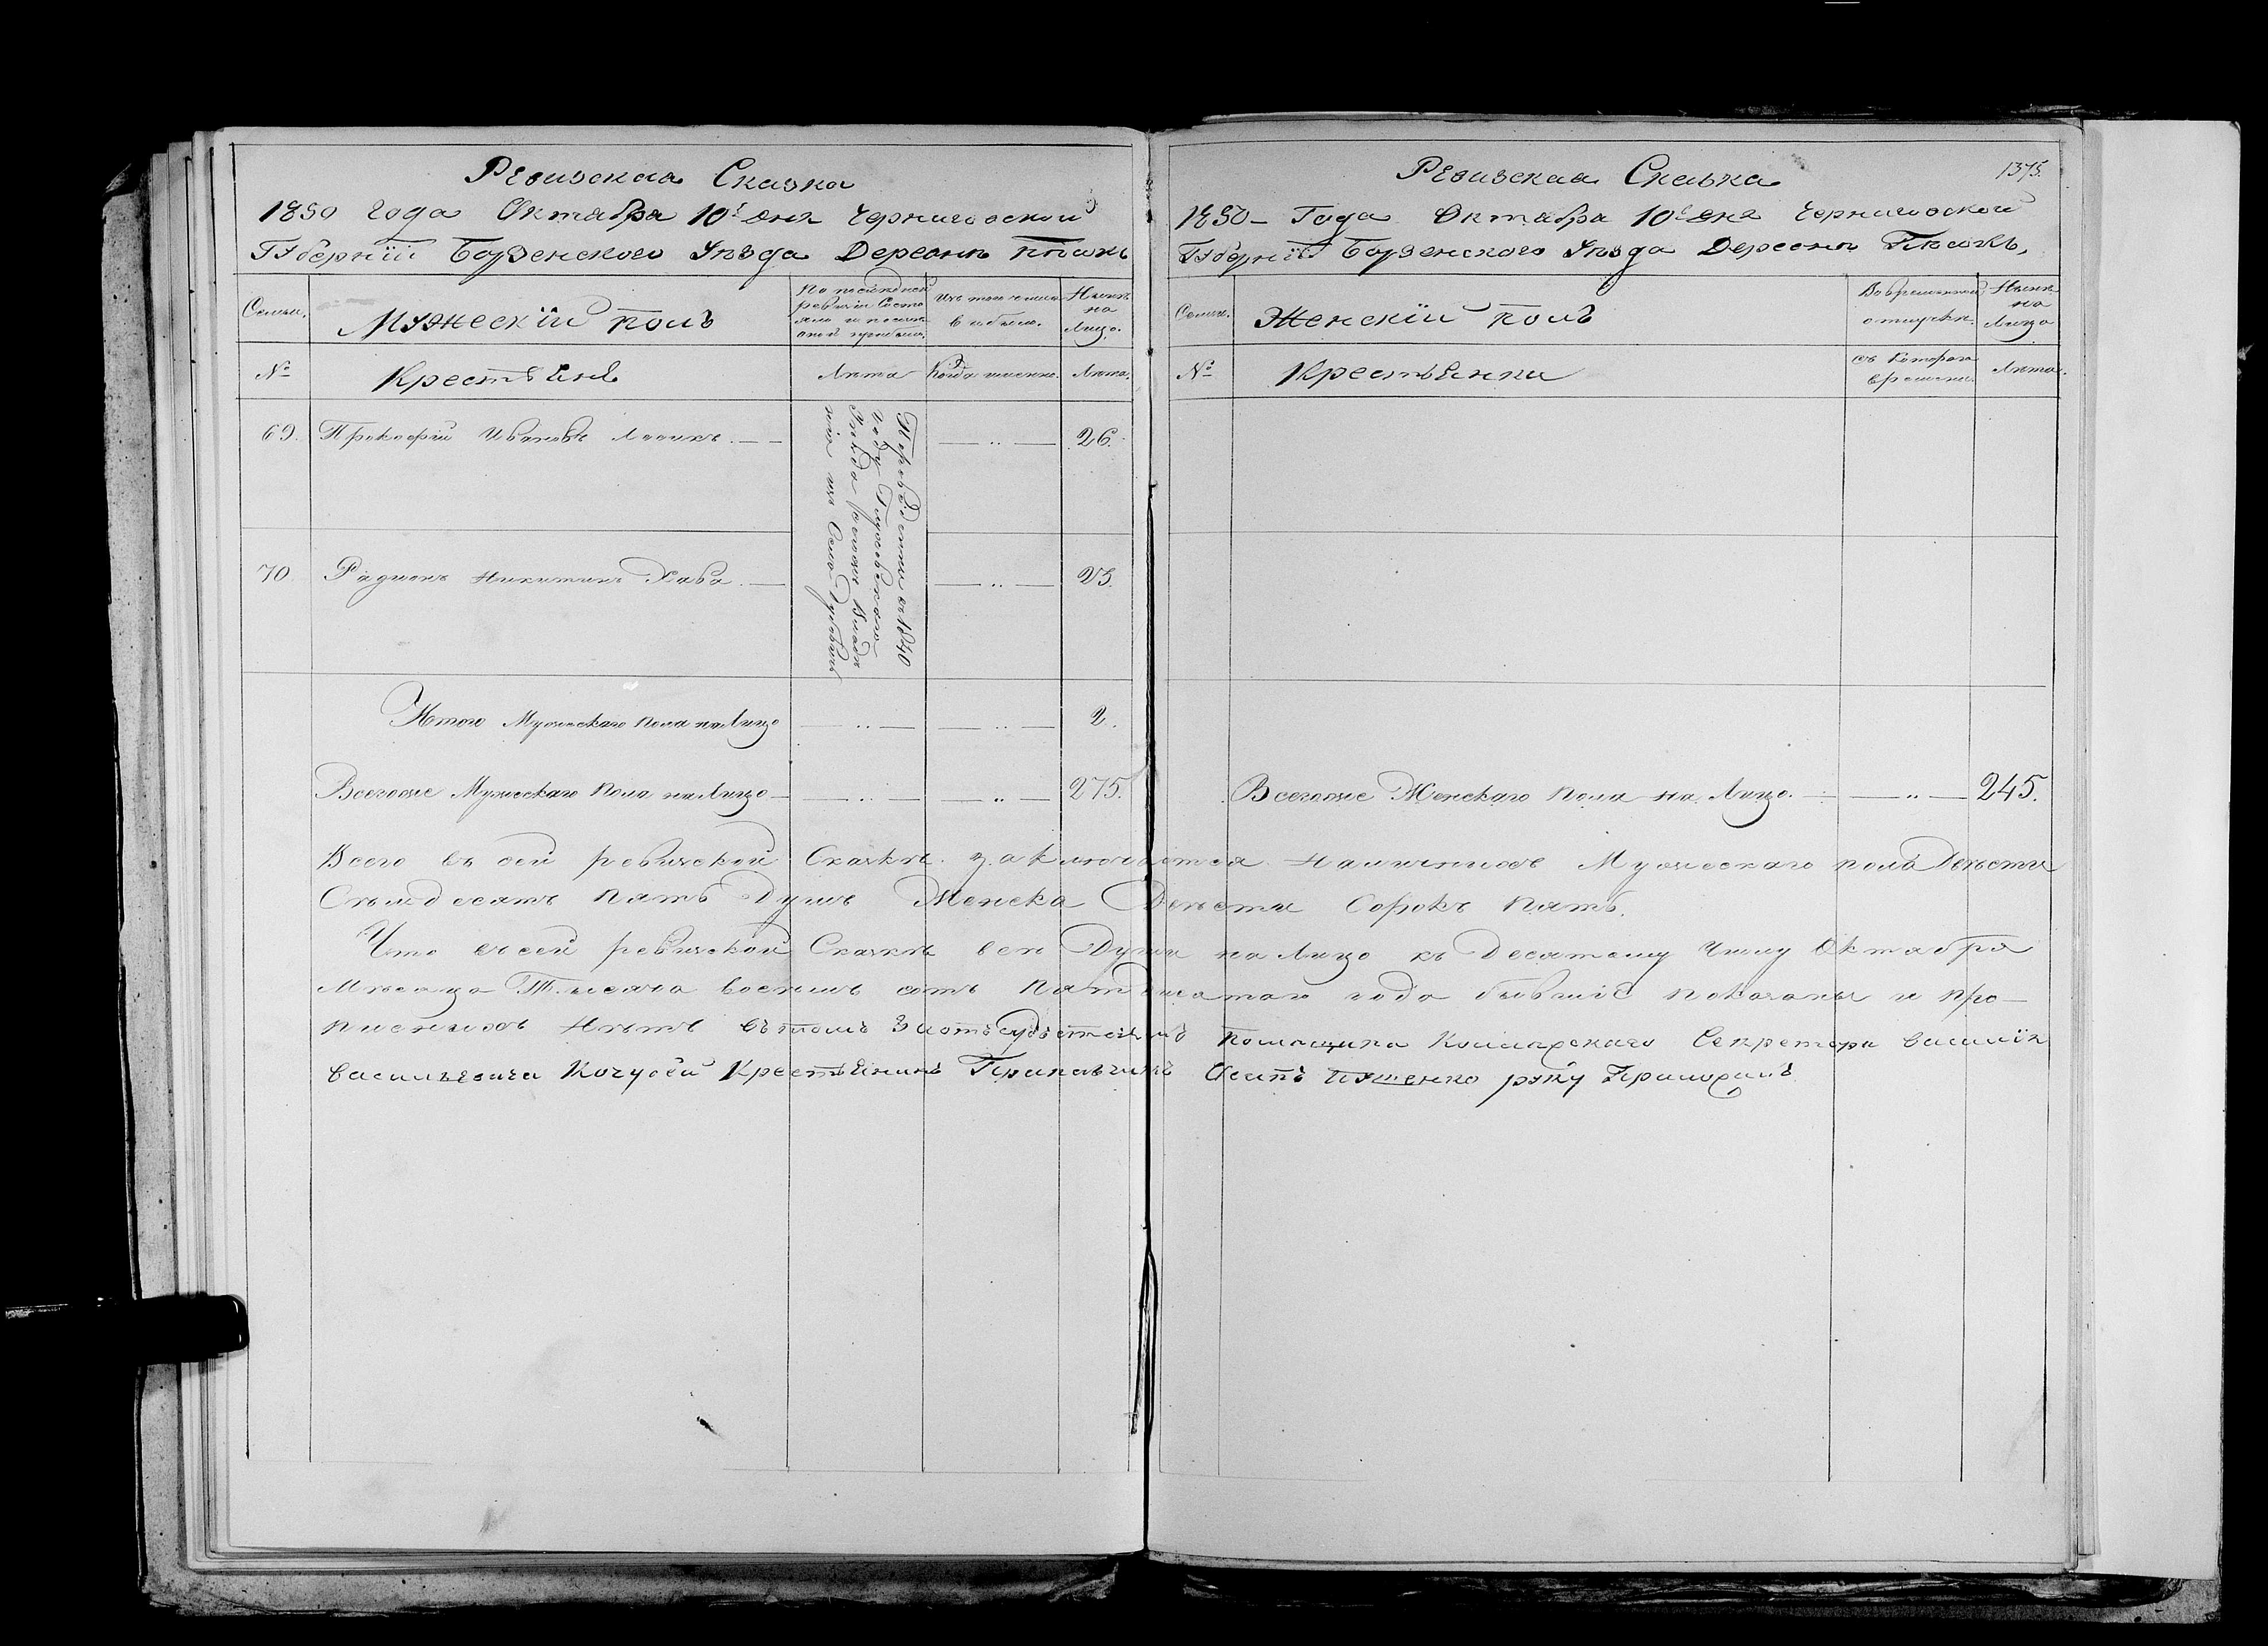 Ревизская Сказка
1850 года Октября 10го дня Черниговской
Губернїи Борзенского Уѣзда Деревни
Семьи.
Мужескїй полъ
По послѣдней ревизіи состояло и послѣ оной прибыло.
Изъ того числа выбыло.
Нынѣ на Лицо.
№
Крестьяне
Лѣта
Когда именно.
Лѣта.
69. Прокофій Ивановъ 26.
70 Радионъ Никитинъ Хаба 23.
Переведенные въ 1840
году
Уѣзда
изъ Села
Итого Мужескаго пола на Лицо 2.
Всегоже Мужескаго пола на Лицо 275.
1375.
Ревизская Сказка
1850 – Года Октября 10го дня Черниговской
Губернїи Борзенского Уѣзда Деревни
Семьи.
Женскїй полъ
Во временной отлучкѣ.
Нынѣ на Лицо
№
Крестьянки
съ Котораго времени.
Лѣта.
Всегоже Женскаго пола на Лицо. 245.
Всего въ сей ревизской Сказкѣ заключается Наличныхъ Мужескаго пола Двѣсти
Семьдесятъ пять Душъ Женска Двѣсти Сорокъ пять.
Что въ сей ревизской Сказкѣ всѣ Души на Лицо къ Десятому Числу Октября
Мѣсяца Тысяча восемь сотъ пятдесятаго года бывшіе показаны и про-
писныхъ Нѣтъ въ томъ За отъсудствїемъ Помѣщика Колѣжскаго Секретаря Василїя
Васильевича Кочубей Крестьянинъ Осипъ руку Приложилъ